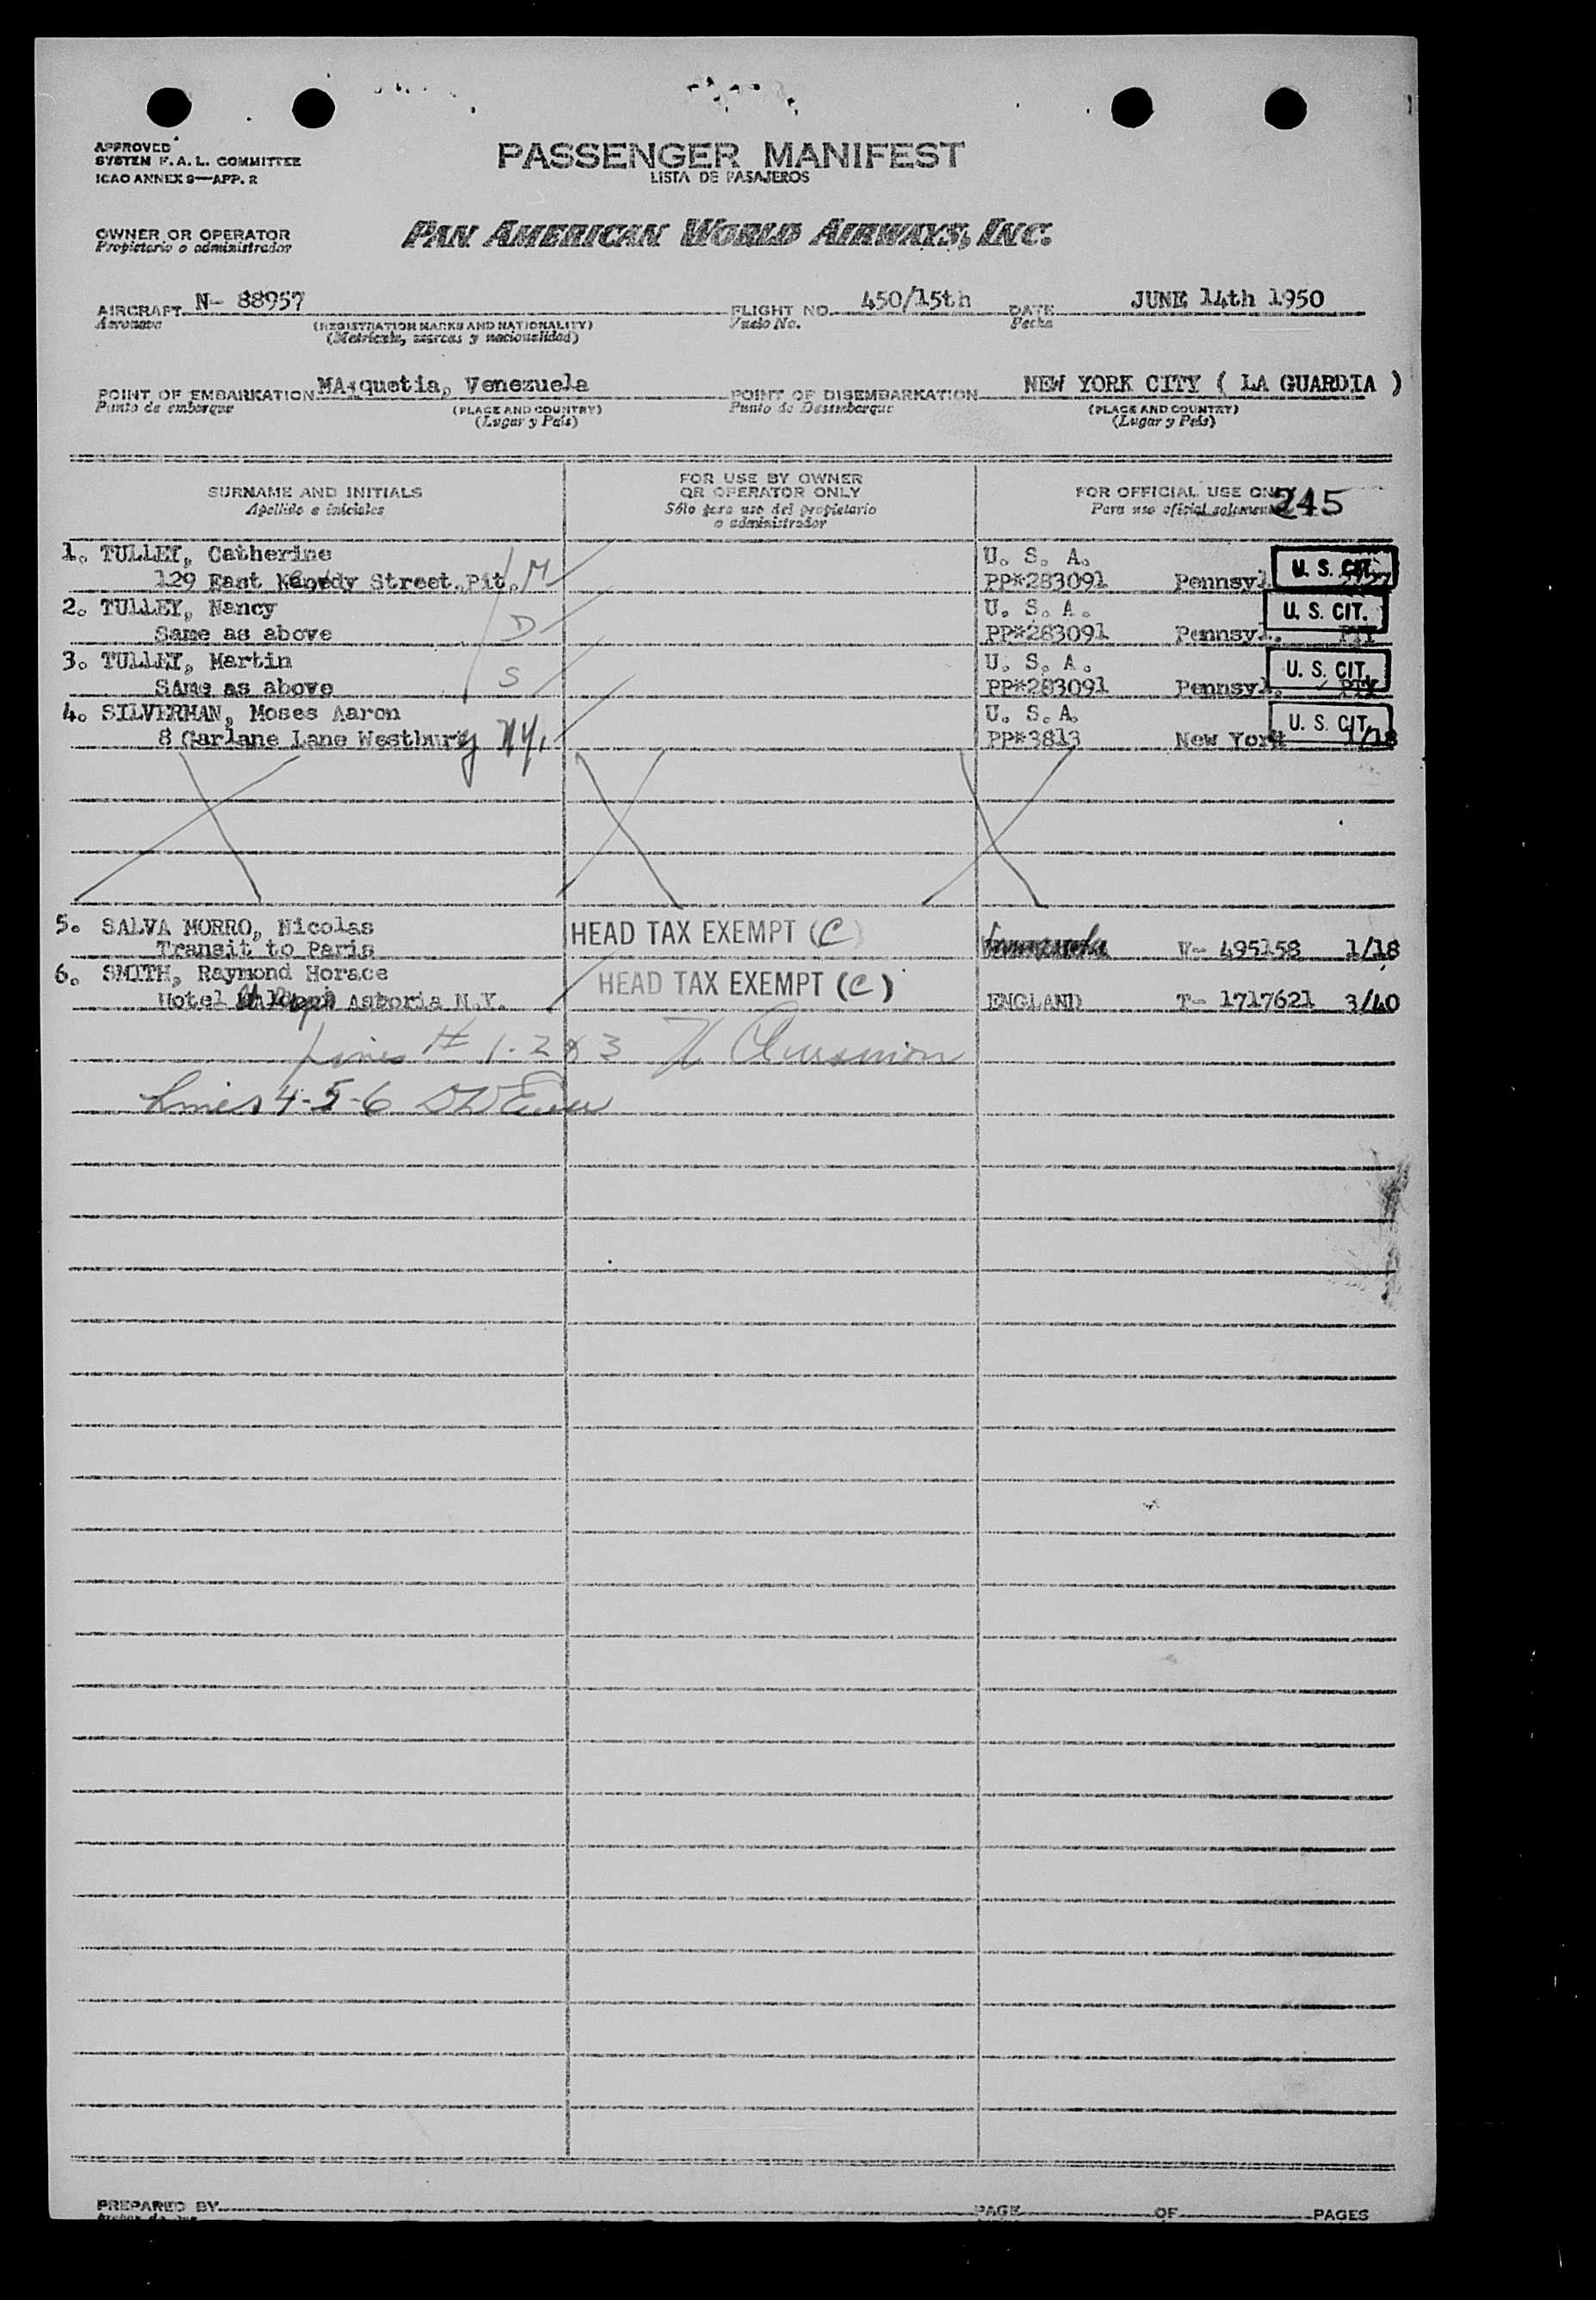 APPROVED
SYSTEM F. A. L. COMMITTEE
ICAO ANNEX 9—APP. 2
PASSENGER MANIFEST
LISTA DE PASAJEROS
OWNER OR OPERATOR
Propietario o administrador
PAN AMERICAN WORLD AIRWAYS, INC.
AIRCRAFT N- 88957 FLIGHT NO. 450/15th DATE JUNE 14th 1950
Aeronave (REGISTRATION MARKS AND NATIONALITY) Vuelo No. Fecha
(Matrícula, marcas y nacionalidad)
POINT OF EMBARKATION MAiquetia, Venezuela POINT OF DISEMBARKATION NEW YORK CITY ( LA GUARDIA )
Punto de embarque (PLACE AND COUNTRY) Punto de Desembarque (PLACE AND COUNTRY)
(Lugar y País) (Lugar y País)
SURNAME AND INITIALS FOR USE BY OWNER OR OPERATOR ONLY FOR OFFICIAL USE ONLY 245
Apellido e iniciales Sólo para uso del propietario o administrador Para uso oficial solamente
1. TULLEY, Catherine U. S. A. U. S. CIT.
129 East Street.,Pit. M PP*283091 Pennsyl
2. TULLEY, Nancy U. S. A. U. S. CIT.
Same as above D PP*283091 Pennsyl. PIT
3. TULLEY, Martin U. S. A. U. S. CIT.
SAme as above S PP*283091 Pennsyl. PIT
4. SILVERMAN, Moses Aaron U. S. A. U. S. CIT.
8 Garlane Lane Westbury N.Y. PP*3813 New York 1/18
5. SALVA MORRO, Nicolas HEAD TAX EXEMPT (C)
Transit to Paris V- 495158 1/18
6. SMITH, Raymond Horace HEAD TAX EXEMPT (C)
Hotel Astoria N.Y. ENGLAND T- 1717621 3/40
Lines # 1-2&3
Lines 4-5-6
PREPARED BY PAGE OF PAGES